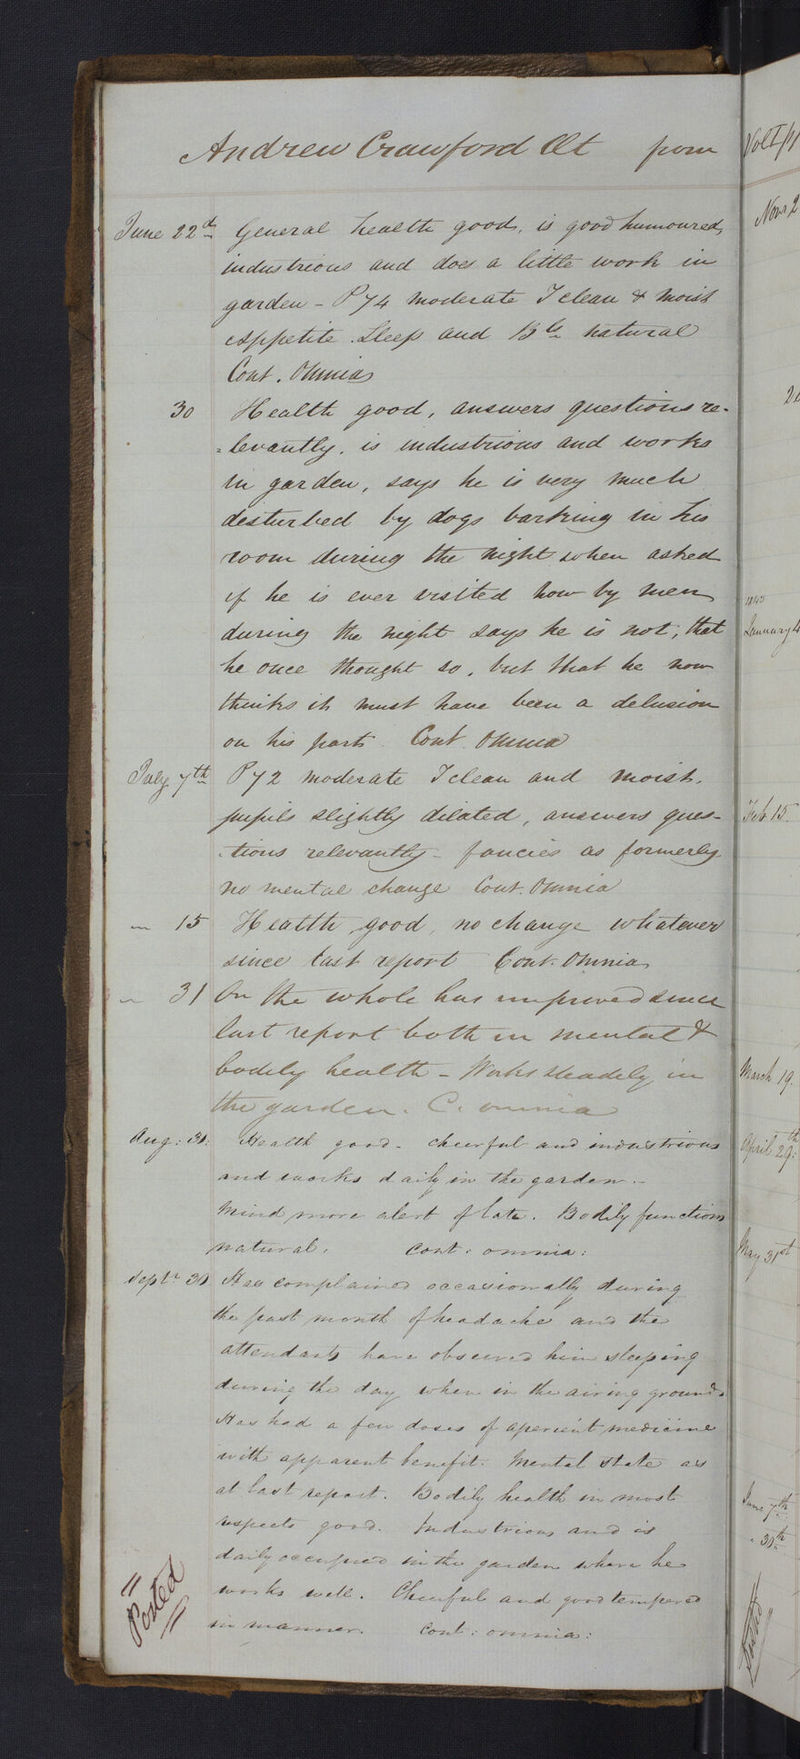 Andrew Crawford Æt from
June 22d General health good, is good humoured,
industrious and does a little work in
garden - P 74 moderate T clean & moist
Appetite Sleep and Bls natural
Cont. Omnia
30 Health good, answers questions re-
=levantly, is industrious and works
in garden, says he is very much
disturbed by dogs barking in his
room during the night when asked
if he is ever visited now by men
during the night says he is not, that
he once thought so, but that he now
thinks it must have been a delusion
on his part. Cont Omnia
July 7th P 72 moderate T clean and moist.
pupils slightly dilated, answers ques-
-tions relevantly - fancies as formerly
no mental change Cont. Omnia
" 15 Health good, no change whatever
since last report Cont. Omnia
" 31 On the whole has improved since
last report both in mental &
bodily health - Works steadily in
the garden. C. omnia
Aug: 31: Health good - cheerful and industrious
and works daily in the garden -
Mind more alert of late. Bodily functions
natural. Cont: omnia:
Septr 30 Has complained occasionally during
the past month of headache and the
attendants have observed him sleeping
during the day when in the airing grounds
Has had a few doses of aperient medicine
with apparent benefit. Mental state as
at last report. Bodily health in most
respects good. Industrious and is
daily occupied in the garden where he
works well. Cheerful and good tempered
in manner. Cont: omnia:
Posted
Vol I p
Nov. 2
1845
January 4
Feb 15.
March 19.
April 29th:
May 31st
June 7th
" 30th